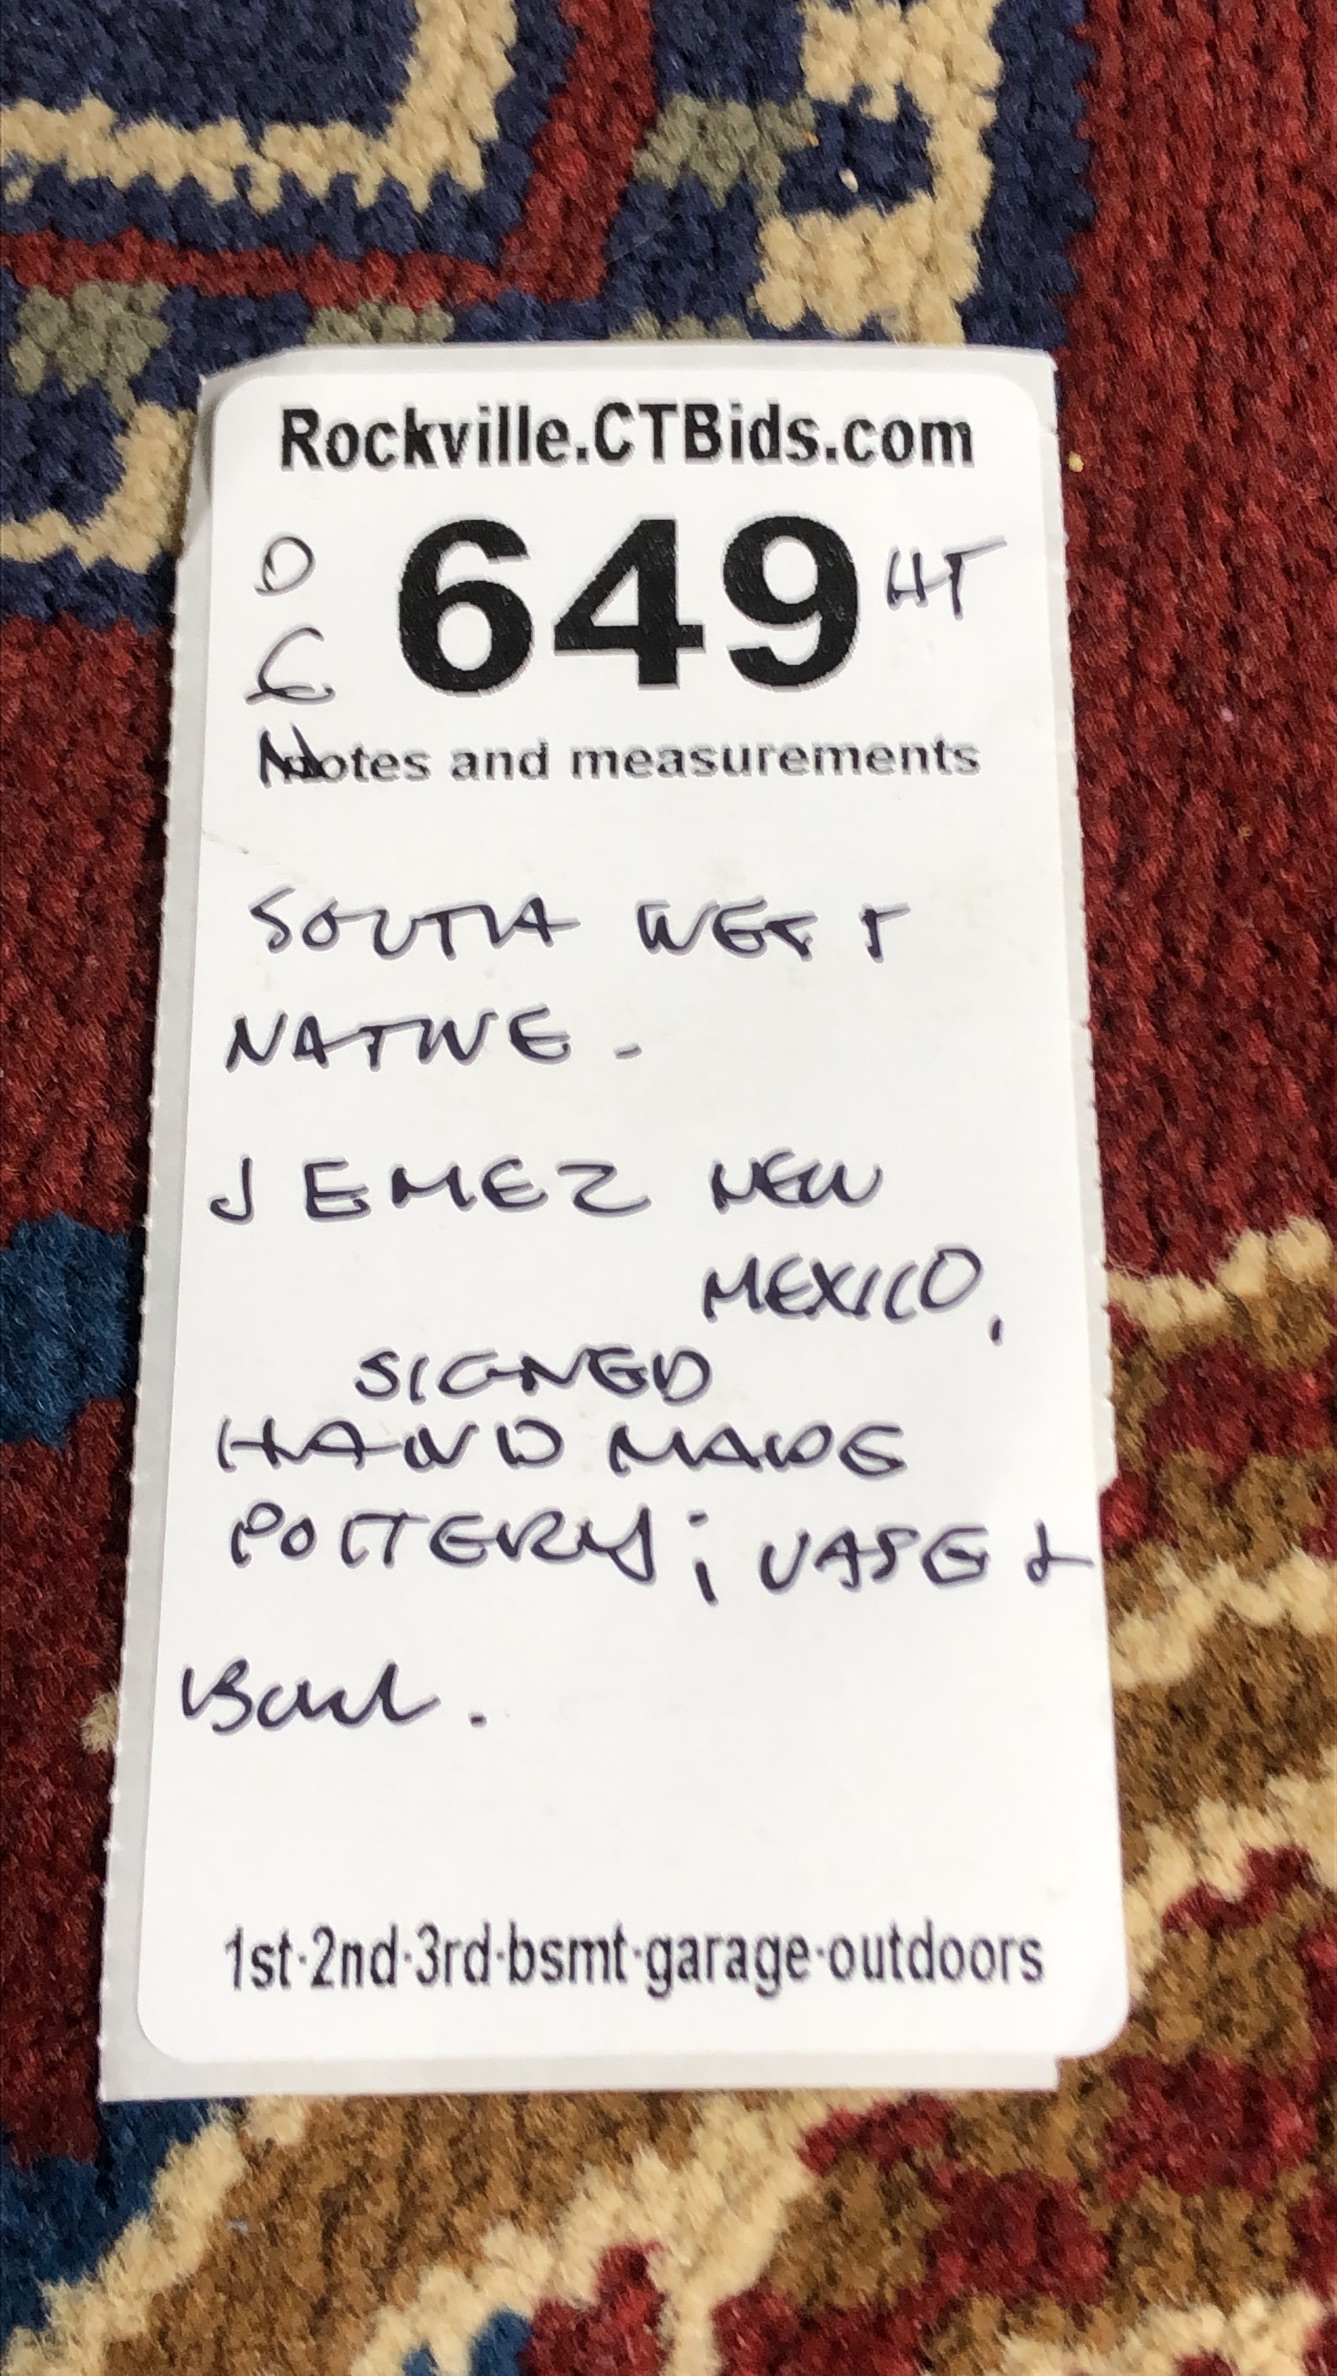 Rockville.CTBids.com
D 649 HT
E
N
Notes and measurements
SOUTH WEST
NATIVE -
JEMEZ NEW
MEXICO,
SIGNED
HAND MADE
POTTERY; VASE &
Bowl.
1st·2nd·3rd·bsmt·garage·outdoors